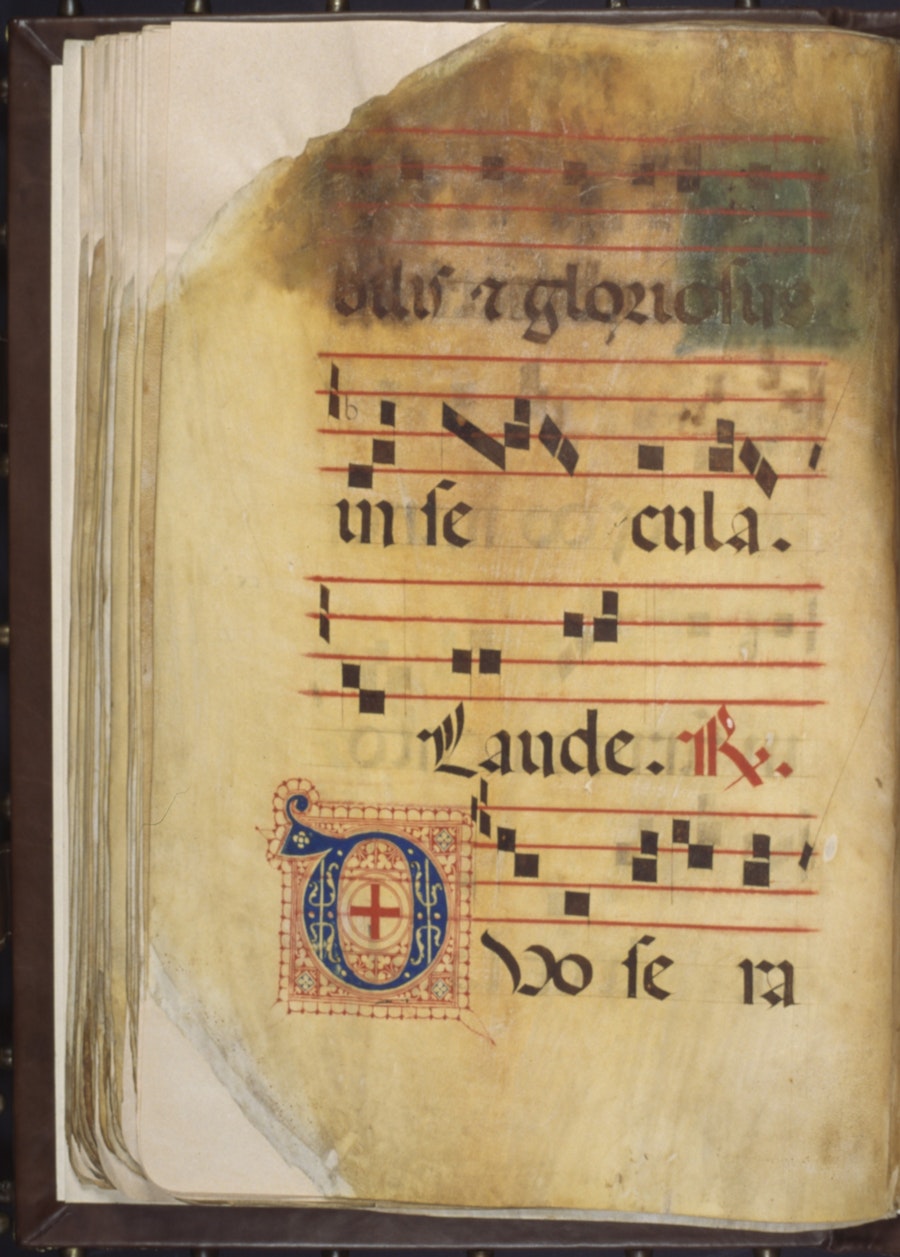 bilis ⁊ gloriosus
in se cula.
Laude. ℟.
DVo se ra